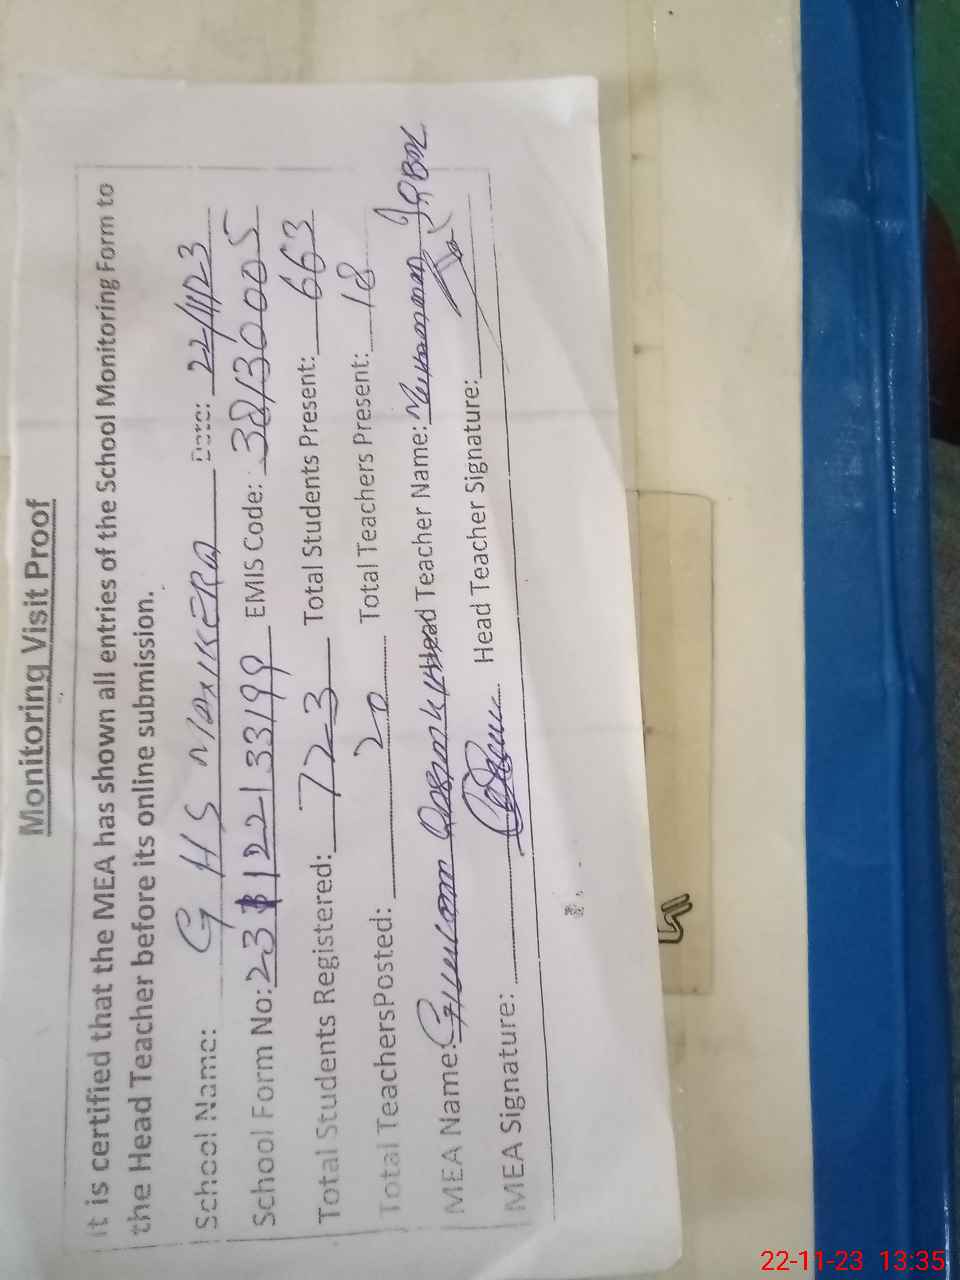 Monitoring Visit Proof
It is certified that the MEA has shown all entries of the School Monitoring Form to
the Head Teacher before its online submission.
School Name: G HS MANKERA Date: 22/11/23
School Form No: 231122133199 EMIS Code: 38130005
Total Students Registered: 723 Total Students Present: 663
Total TeachersPosted: 20 Total Teachers Present: 18
MEA Name: Ghulam Head Teacher Name: Muhammad Iqbal
MEA Signature: Head Teacher Signature:
22-11-23 13:35